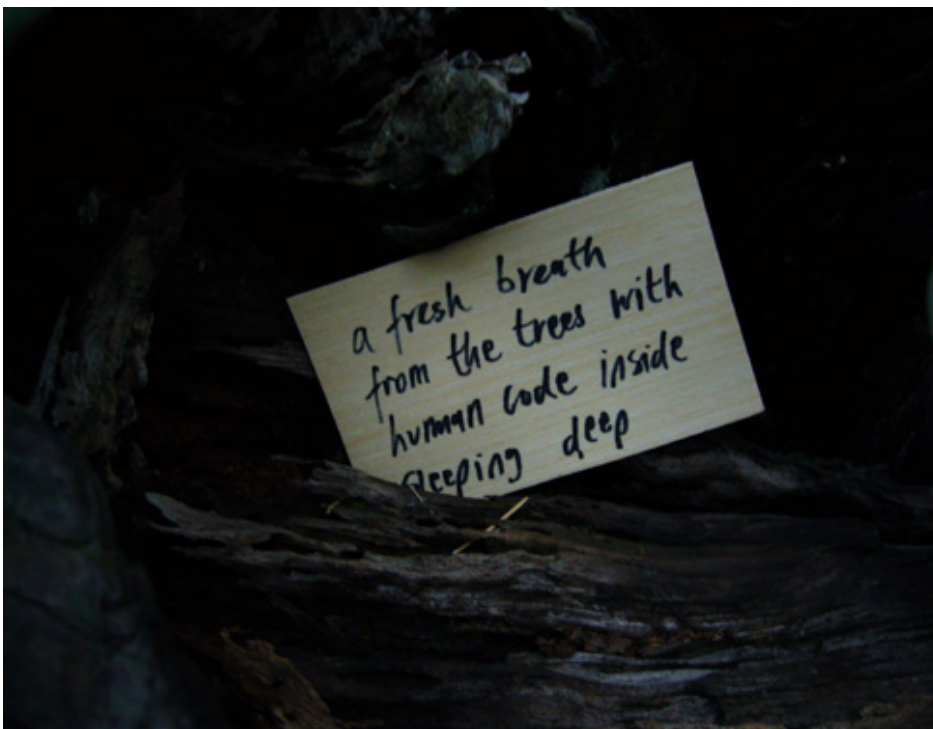 a fresh breath
from the trees with
human code inside
sleeping deep